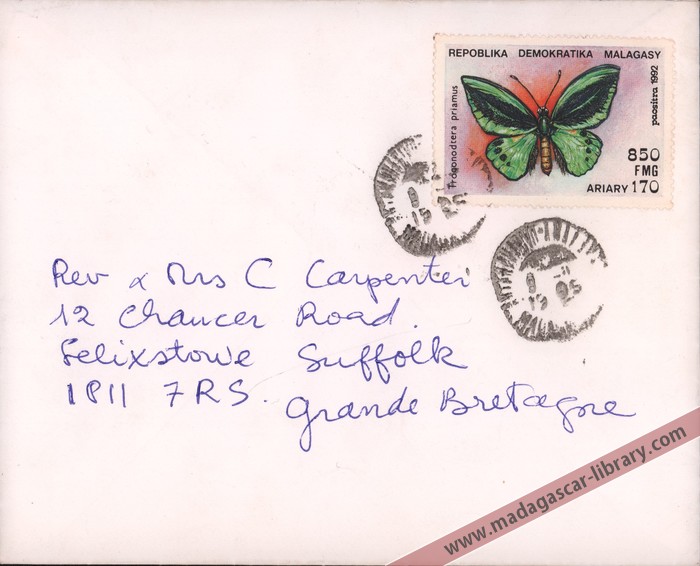 REPOBLIKA DEMOKRATIKA MALAGASY
Trogonodtera priamus
paositra 1992
850
FMG
ARIARY 170
Rev & Mrs C Carpenter
12 Chaucer Road.
Felixstowe Suffolk
IP11 7RS.
Grande Bretagne
www.madagascar-library.com